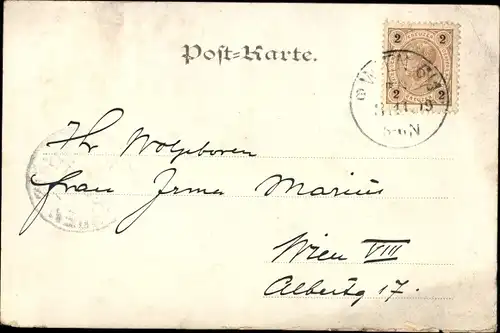 Post-Karte.
2 2
2 2
WIEN 6/3
Ihr Wolgeboren
Frau Irma Marius
Wien VIII
Albertg 17.